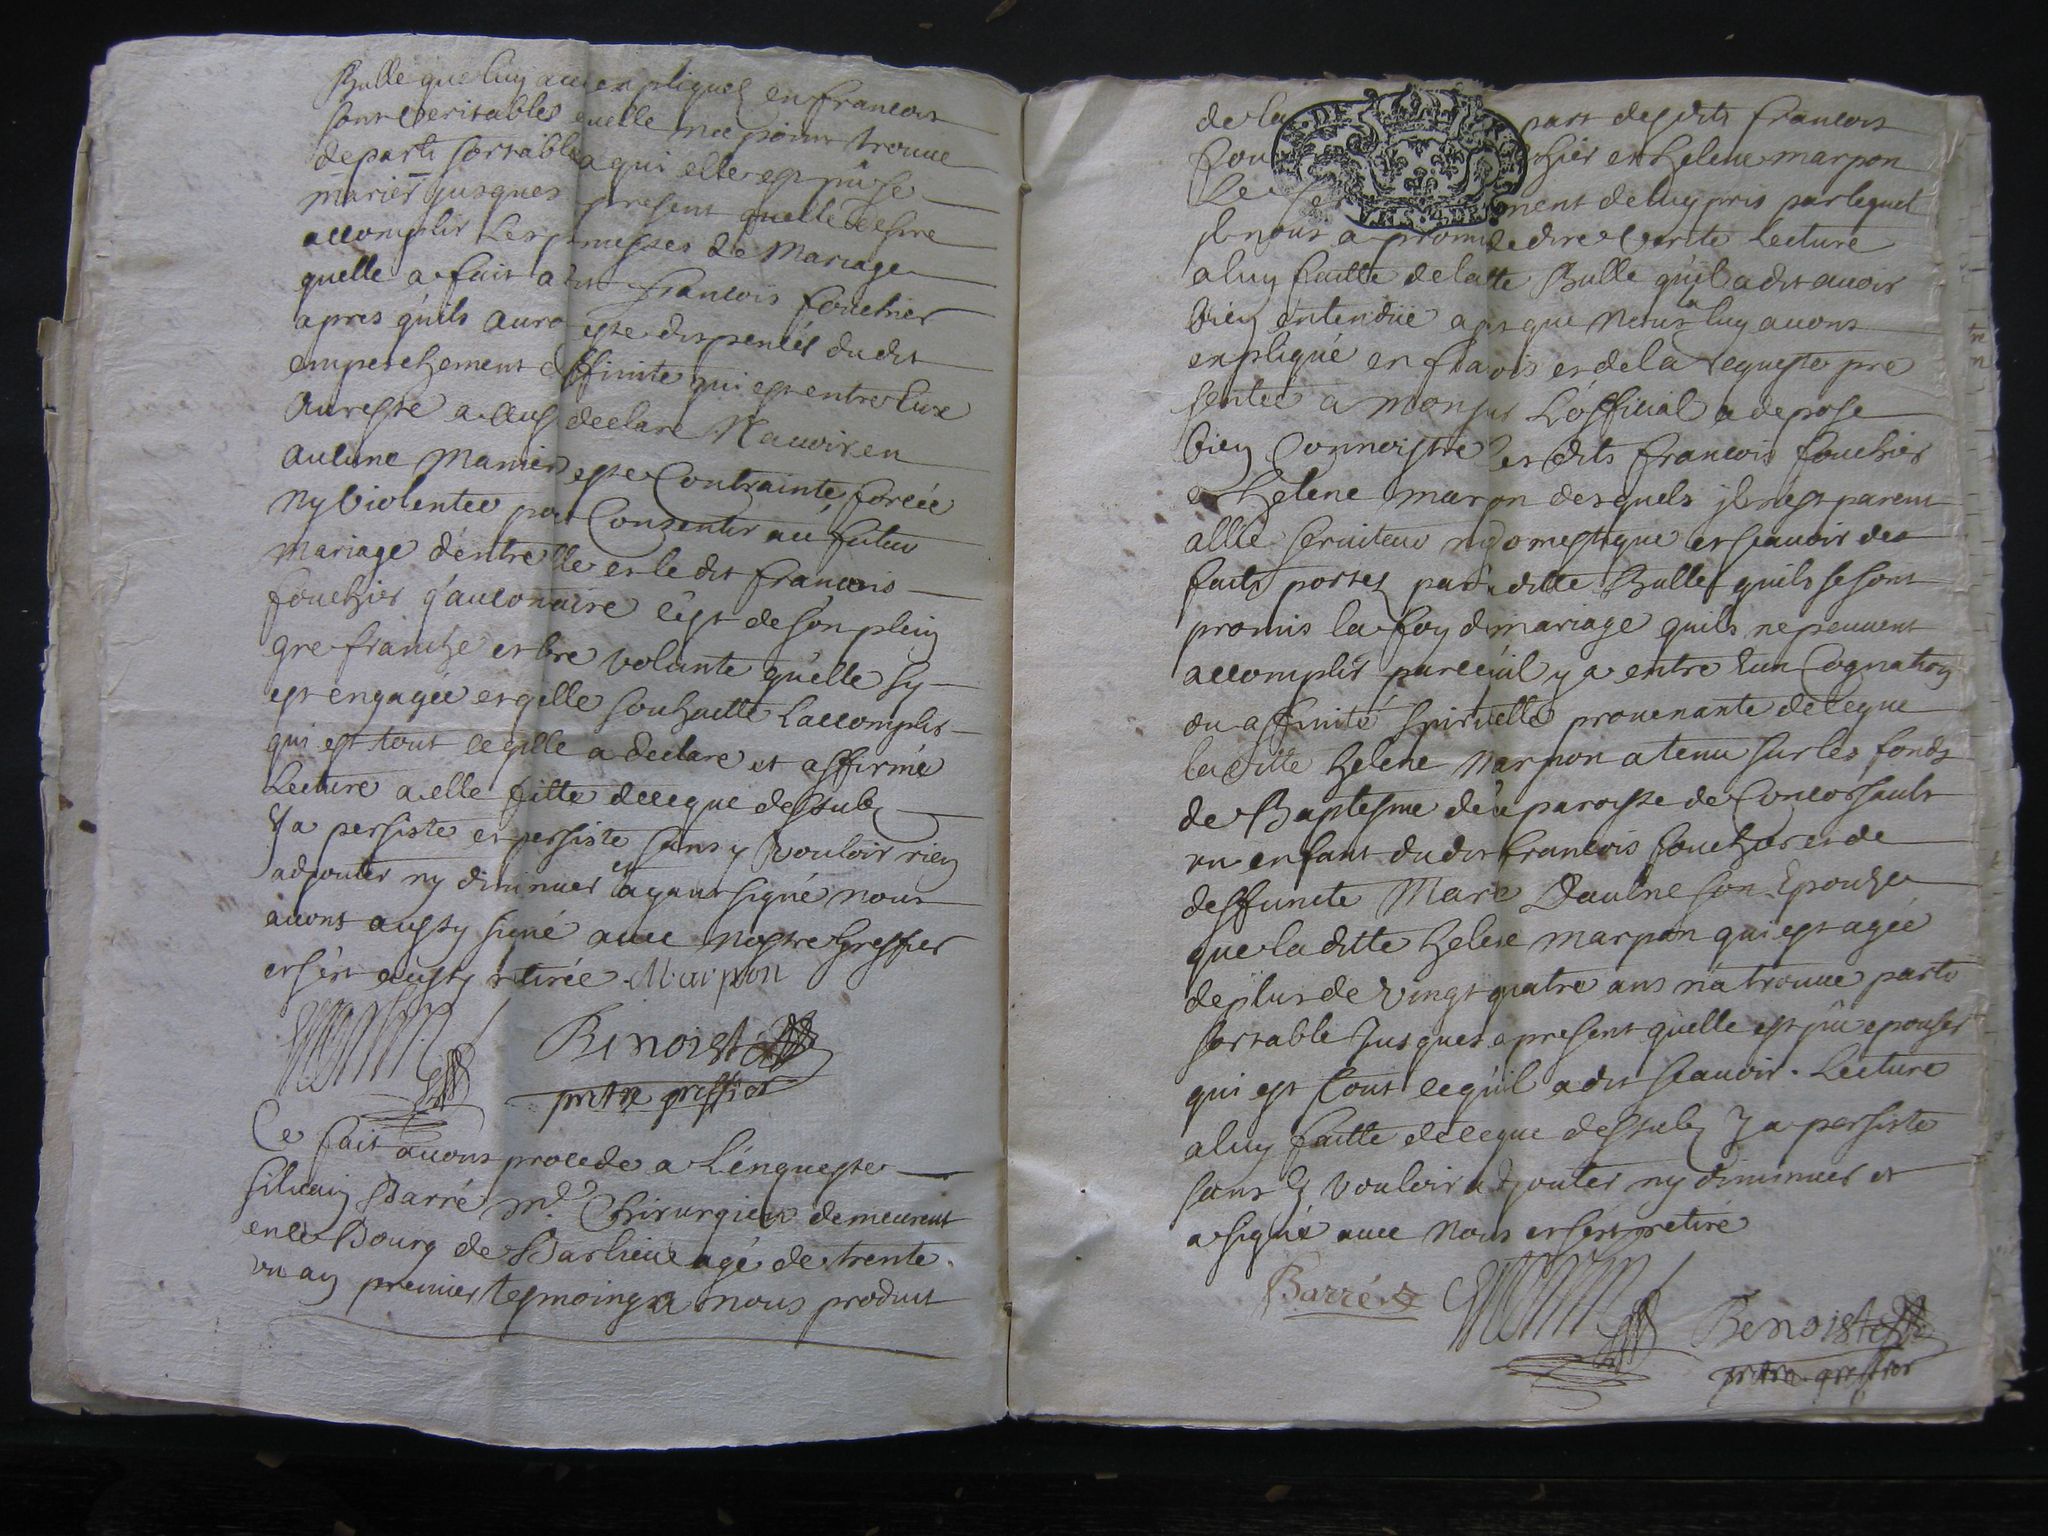 Bulle que luy avons expliquez en francois
sont veritables quelle na point trouue
de parti sortable a qui elle est pu se
marier jusques present quelle desire
accomplir Les promesses de Mariage
quelle a fait a dit francois fouchier
apres quils auro este dispensés du dit
empeschement affinite qui est entre Eux
Au reste a aussy declare N'auoir en
aucune Manier este Contrainte, forcée
ny violentee pour Consentir au futur
mariage d'entre elle et le dit francois
fouchier q'au contraire c'est de son plein
gre franche et libre volunte qu'elle sy
est engagée et qelle souhaitte L'accomplir
qui est tout ce qelle a declare et affirmé
Lecture a elle faitte de ce que dessubz
Y a persiste et persiste sans y vouloir rien
adjouter ny diminuer et ayant signé nous
auons aussy signé auec Nostre Greffier
et s'est aussy retirée. Marpon
Benoist
pretre greffier
Ce fait auons procede a L'enqueste
siluain Barré Mre. Chirurgien demeurent
en le Bourg de Barlieu agé de trente
un an premier tesmoing a nous produit
de la part desdits francois
Fou chier et helene marpon
Le ser ment de luy pris par lequel
il nous a promis de dire verité Lecture
a luy faitte de la tte Bulle qu'il a dit auoir
bien entendüe aps que Nous la luy auons
expliqué en francois et de la requeste pre
sentée a monsieur L'official a depose
bien Connoistre les dits francois fouchier
et helene marpon desquels il n'est parent
allié seruiteur ny domestique et scauoir des
faits portez par la ditte Bulle quils se sont
promis la foy de mariage quils ne peuuent
accomplir parce qu'il y a entre Eux Cognation
ou affinité spirituelle prouenante de ce que
la ditte helene Marpon a tenu sur les fonds
de Baptesme de la paroisse de Concorsault
un enfant du dit francois fouchier et de
deffuncte Marie Daulne son Epouse
que la ditte helene marpon qui est agée
de plus de vingt quatre ans n'a trouue parti
sortable Jusques a present quelle est pu epouser
qui est tout ce qu'il a dit scauoir. Lecture
a luy faitte de ce que dessubz Y a persiste
sans y vouloir adjouter ny diminuer et
a signé auec Nous et s'est retiré
Barré
Benoist
pretre greffier